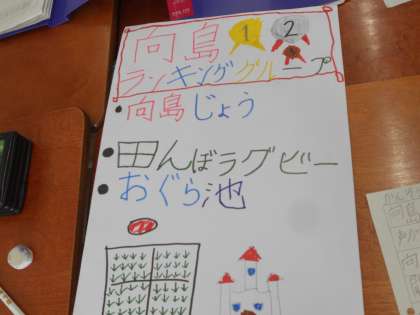 向島
1 2
ランキンググループ
向島じょう
田んぼラグビー
おぐら池